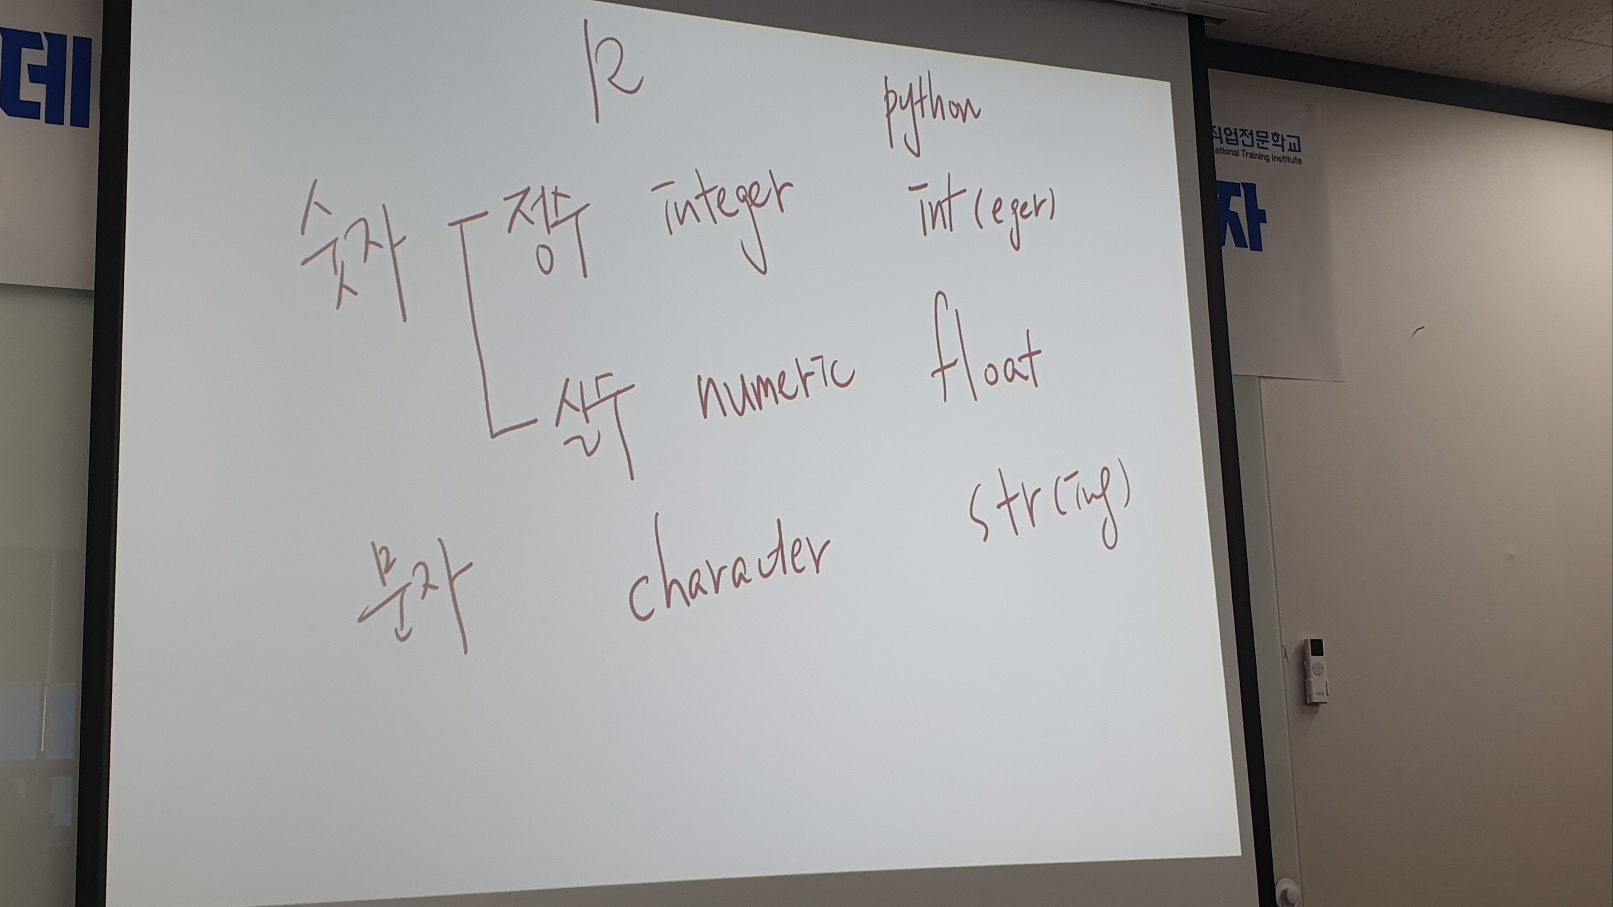 데
R python
숫자 정수 integer int(eger)
실수 numeric float
문자 character str(ing)
직업전문학교
ational Training Institute
자